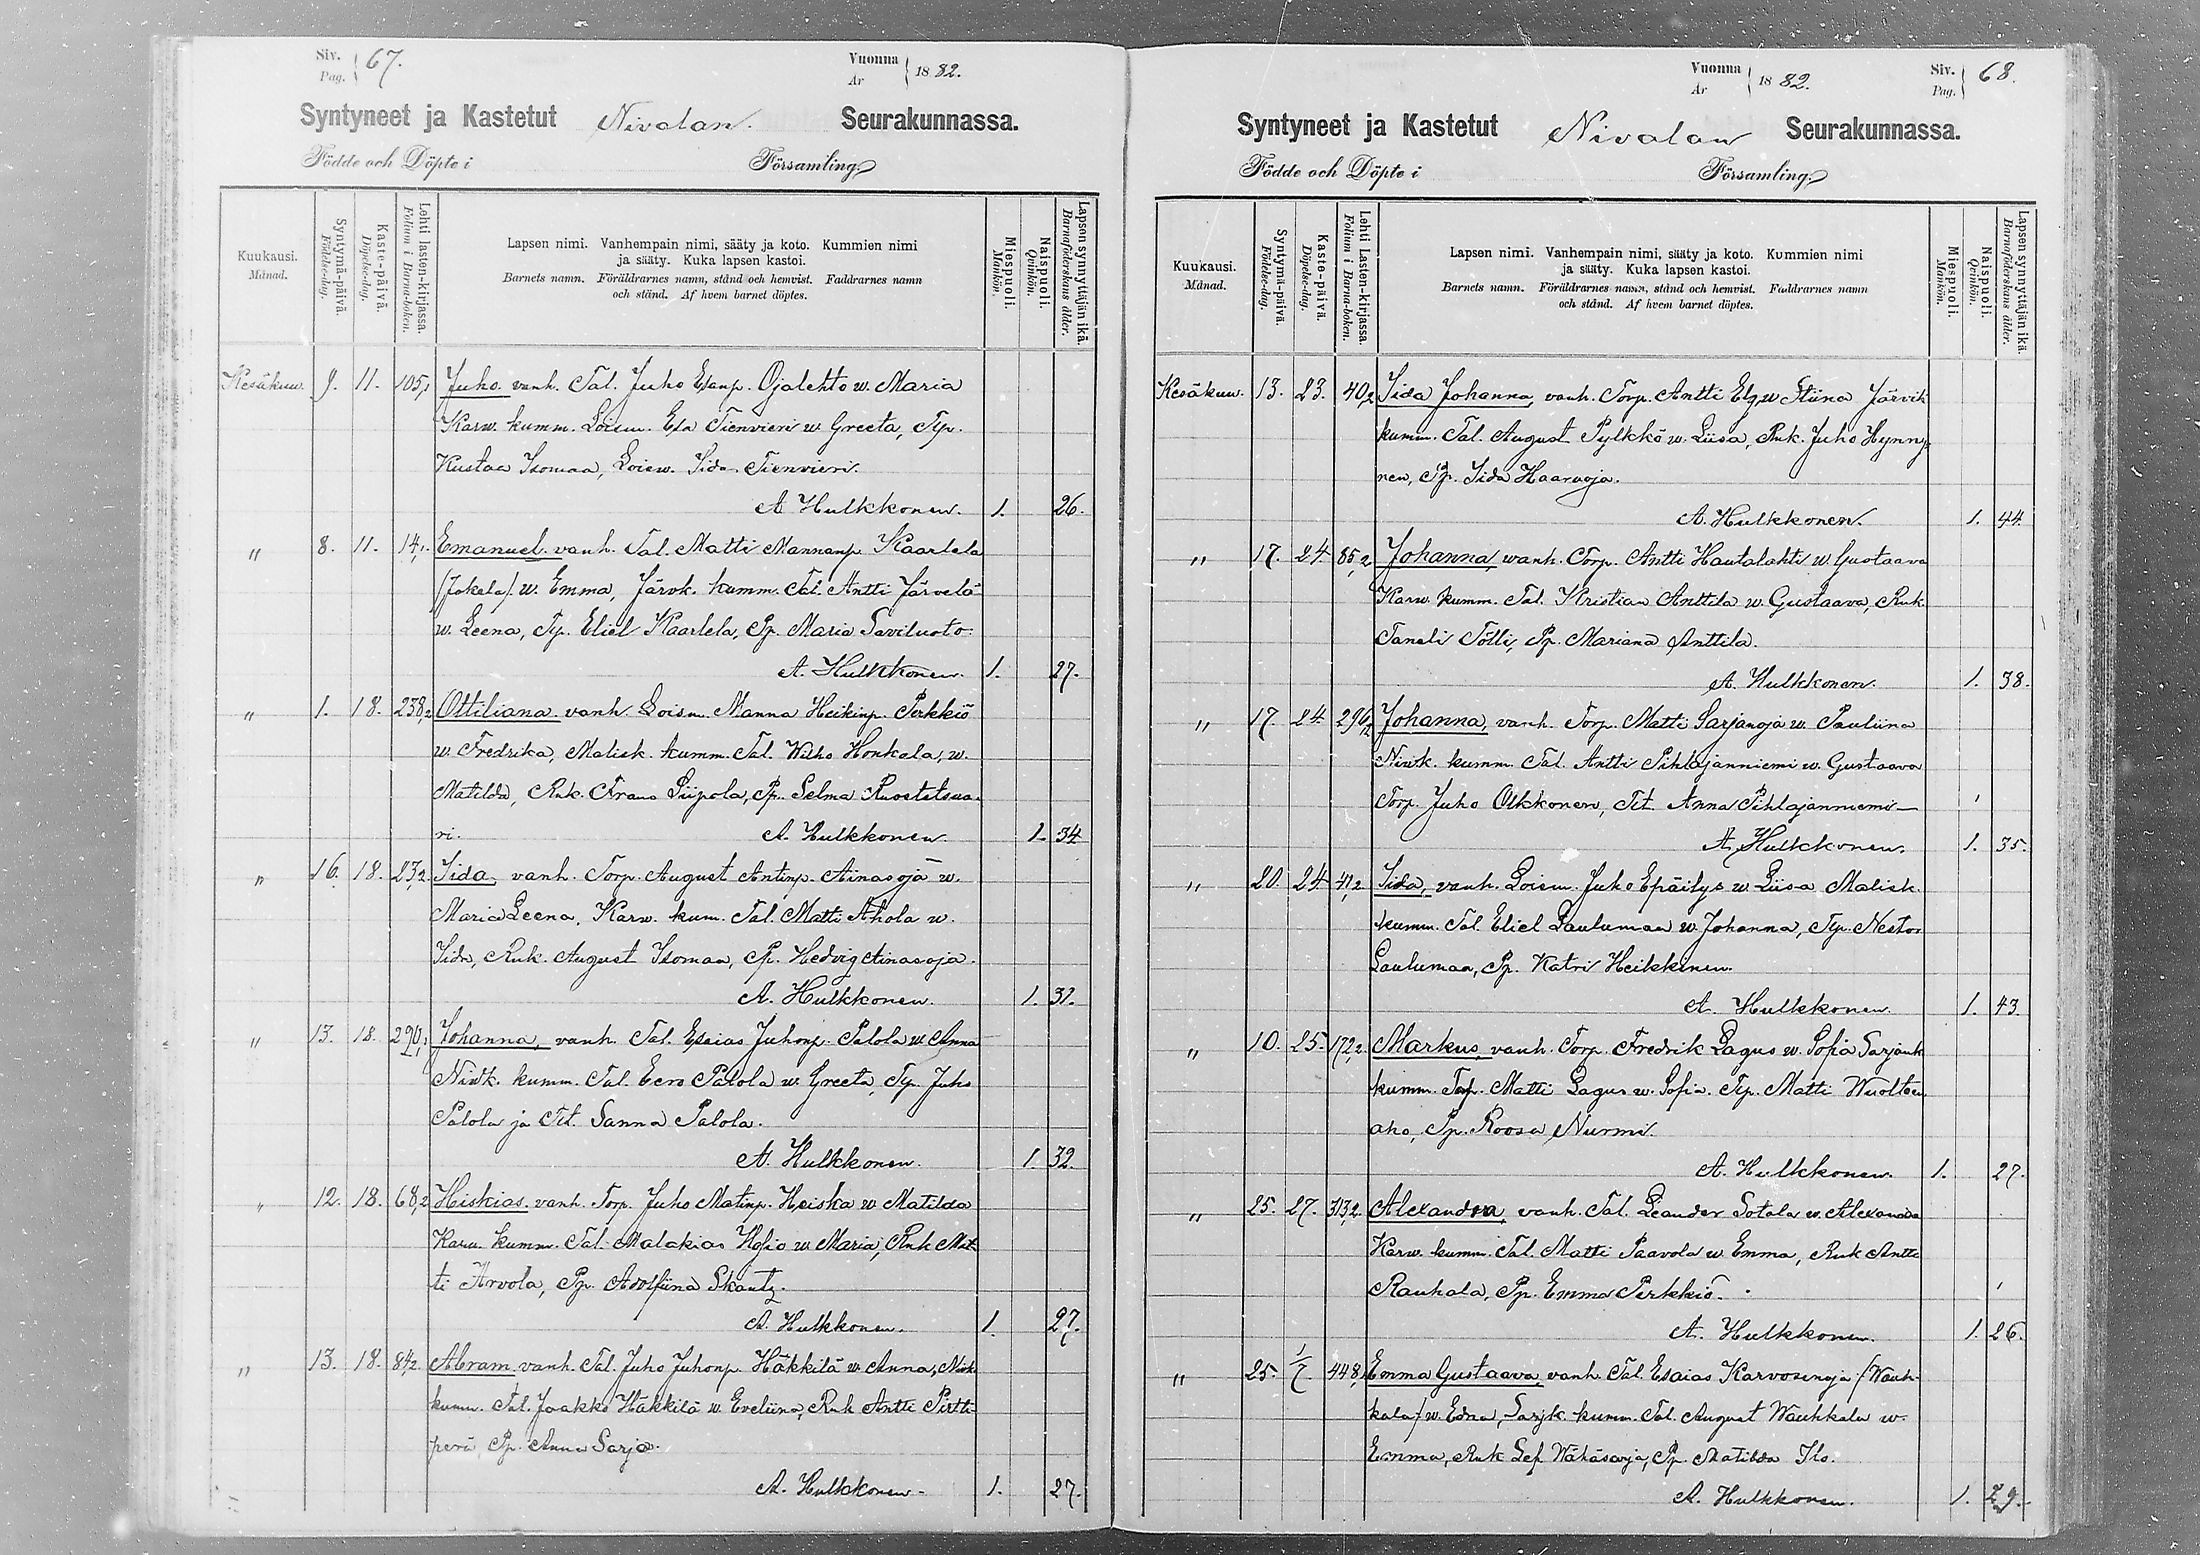 Siv. Pag. 67.
Vuonna År 1882.
Syntyneet ja Kastetut Nivalan Seurakunnassa.
Födde och Döpte i Församling.
Kuukausi. Månad.
Syntymä-päivä. Födelse-dag.
Kaste-päivä. Döpelse-dag.
Lehti lasten-kirjassa. Folium i Barna-boken.
Lapsen nimi. Vanhempain nimi, sääty ja koto. Kummien nimi
ja sääty. Kuka lapsen kastoi.
Barnets namn. Föräldrarnes namn, stånd och hemvist. Faddrarnes namn
och stånd. Af hvem barnet döptes.
Miespuoli. Mankön.
Naispuoli. Qvinkön.
Lapsen synnyttäjän ikä. Barnaföderskans ålder.
Kesäkuu. 9. 11. 105,1 Juho vanh. Tal. Juho Esanp. Ojalehto w. Maria
Karw. kumm. Loism. Esa Tienvieri w. Greeta, Tp.
Kustaa Isomaa, Loisw. Iida Tienvieri.
A Hulkkonen. 1. 26.
" 8. 11. 14,1. Emanuel vanh. Tal. Matti Mannanp. Kaarlela
/Jokela/ w. Emma, Järvk. kumm. Tal. Antti Järvelä
w. Leena, Tp. Eliel Kaarlela, Pp. Maria Saviluoto.
A. Hulkkonen. 1. 27.
" 1. 18. 238,2 Ottiliana vanh. Loism. Manna Heikinp. Perkkiö
w. Fredrika, Malisk. kumm. Tal. Wilho Honkala, w.
Matilda, Ruk. Frans Piipola, Pp. Selma Ruostetsua-
ri. A. Hulkkonen 1. 34
" 16. 18. 23,2 Iida vanh. Torp. August Antinp. Ainasoja w.
Maria Leena, Karw. kum. Tal. Matti Ahola w.
Iida, Ruk. August Isomaa, Pp. Hedvig Ainasoja.
A. Hulkkonen. 1. 31.
" 13. 18. 290,1 Johanna, vanh. Tal. Esaias Juhonp. Palola w. Anna
Niwk. kumm. Tal. Eero Palola w. Greeta, Tp. Juho
Palola ja Tit. Sanna Palola.
A. Hulkkonen. 1. 32.
" 12. 18. 68,2 Hiskias vanh. Torp. Juho Matinp. Heiska w Matilda
Karw. kumm. Tal. Malakias Hosio w Maria, Ruk Mat-
ti Arvola, Pp. Adolfiina Skantz.
A. Hulkkonen. 1. 27.
" 13. 18. 84,2 Abram vanh. Tal. Juho Juhonp. Häkkilä w. Anna, Niwk
kumm. Tal. Jaakko Häkkilä w. Eveliina, Ruk Antti Pirtti-
perä, Pp. Anna Sarja.
A. Hulkkonen. 1. 27.
Vuonna År 1882.
Siv. Pag. 68.
Syntyneet ja Kastetut Nivalan Seurakunnassa.
Födde och Döpte i Församling.
Kuukausi. Månad.
Syntymä-päivä. Födelse-dag.
Kaste-päivä. Döpelse-dag.
Lehti Lasten-kirjassa. Folium i Barna-boken.
Lapsen nimi. Vanhempain nimi, sääty ja koto. Kummien nimi
ja sääty. Kuka lapsen kastoi.
Barnets namn. Föräldrarnes namn, stånd och hemvist. Faddrarnes namn
och stånd. Af hvem barnet döptes.
Miespuoli. Mankön.
Naispuoli. Qvinkön.
Lapsen synnyttäjän ikä. Barnaföderskans ålder.
Kesäkuu. 13. 23. 40,2 Iida Johanna, vanh. Torp. Antti Elg w Stiina Järvik
kumm. Tal. August Pylkkö w. Liisa, Ruk. Juho Hynny-
nen, Pp. Iida Haaraoja.
A. Hulkkonen. 1. 44
" 17. 24. 85,2 Johanna, wanh. Torp. Antti Hautalahti w. Gustaava
Karw. kumm. Tal. Kristian Anttila w. Gustaava, Ruk
Taneli Tölli, Pp. Mariana Anttila.
A. Hulkkonen. 1. 38.
" 17. 24 296,2 Johanna, vanh. Torp. Matti Sarjanoja w. Pauliina
Niwk. kumm. Tal. Antti Pihlajanniemi w. Gustaava
Torp. Juho Olkkonen, Tit. Anna Pihlajanniemi
A. Hulkkonen. 1. 35.
" 20. 24 41,2 Iida, vanh. Loism. Juho Epäilys w Liisa Malisk.
kumm. Tal. Eliel Laulumaa w. Johanna, Tp. Nestor
Laulumaa, Pp. Katri Heikkinen.
A. Hulkkonen. 1. 43.
" 10. 25. 172,2 Markus, vanh. Torp. Fredrik Lagus w. Sofia Sarjank
kumm. Torp. Matti Lagus w. Sofia. Tp. Matti Wuolteen
aho, Pp. Roosa Nurmi.
A. Hulkkonen. 1. 27.
" 25. 27. 313,2 Alexandra, vanh. Tal. Leander Sotala w. Alexandra
Karw. kumm. Tal. Matti Paavola w Emma, Ruk Antti
Rauhala, Pp. Emma Perkkiö.
A. Hulkkonen. 1. 26.
" 25. 1/7 448, Emma Gustaava, vanh. Tal. Esaias Karvosenoja /Wauh-
kala/ w. Edna, Sarjk. kumm. Tal. August Wauhkala w.
Emma, Ruk Wähäsarja, Pp Matilda Ilo.
A. Hulkkonen. 1. 29.